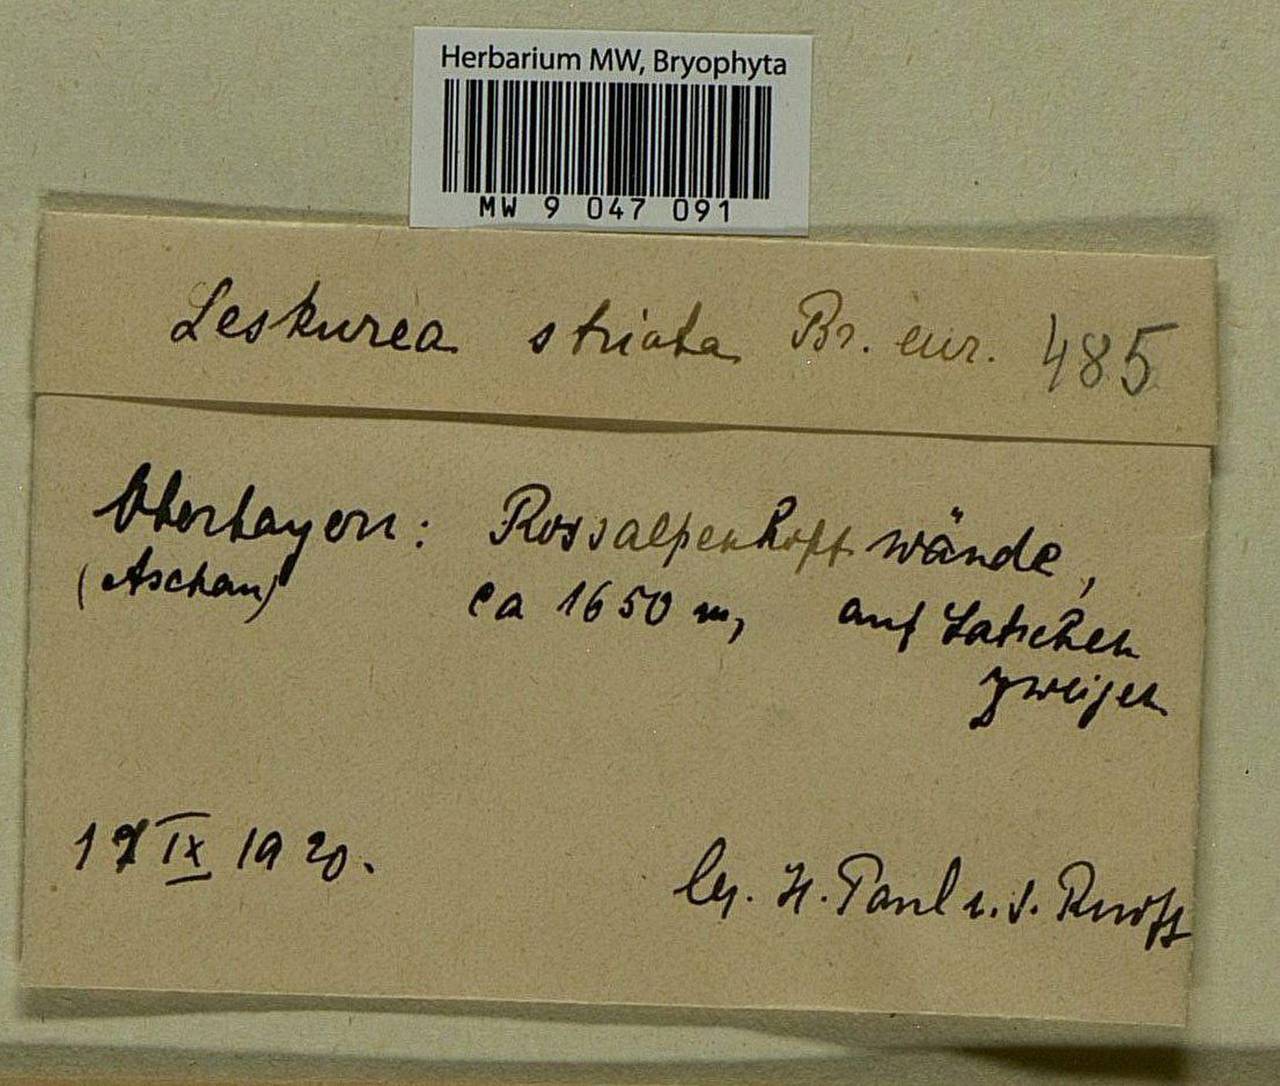 Herbarium MW, Bryophyta
MW 9 047 091
Leskurea striata Br. eur. 485
Oberbayern: Rossalpenkopf wände,
(Aschau) ca 1650 m, auf Latschen
zweigen
17 IX 1920.
leg. H. Paul u. S. Ruoff